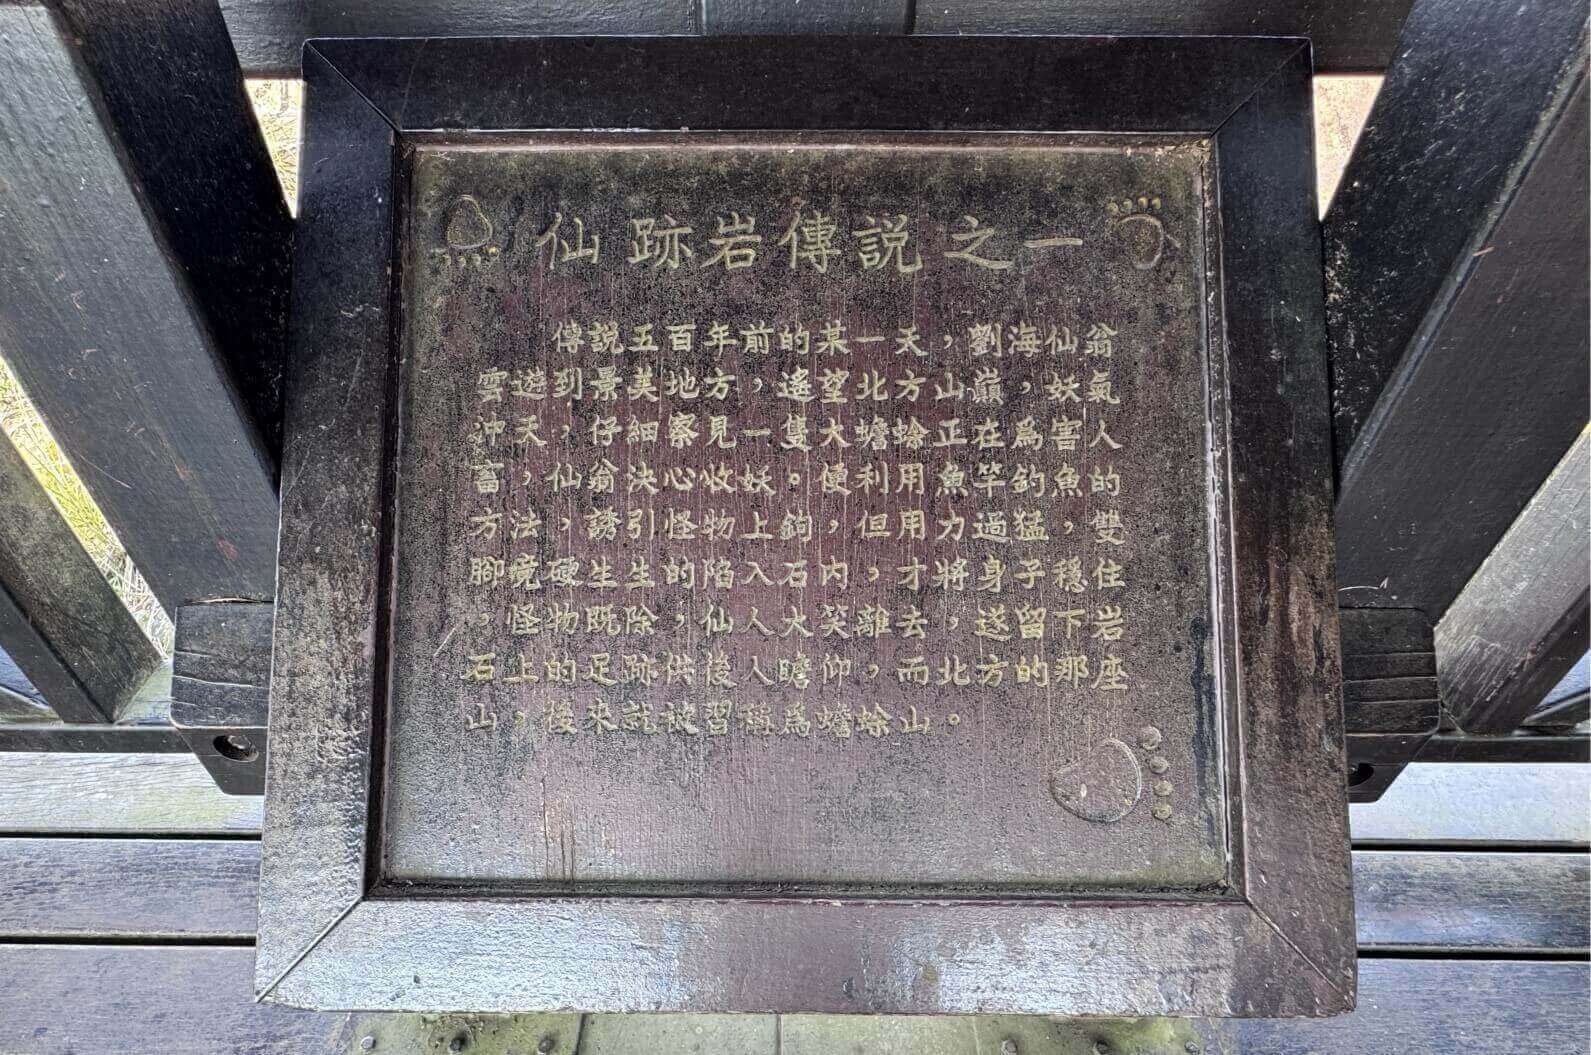 仙跡岩傳説之一
傳說五百年前的某一天，劉海仙翁
雲遊到景美地方，遙望北方山巔，妖氣
沖天，仔細察見一隻大蟾蜍正在為害人
畜，仙翁決心收妖。便利用魚竿釣魚的
方法，誘引怪物上鉤，但用力過猛，雙
腳竟硬生生的陷入石內，才將身子穩住
，怪物既除，仙人大笑離去，遂留下岩
石上的足跡供後人瞻仰，而北方的那座
山，後來就被習稱為蟾蜍山。